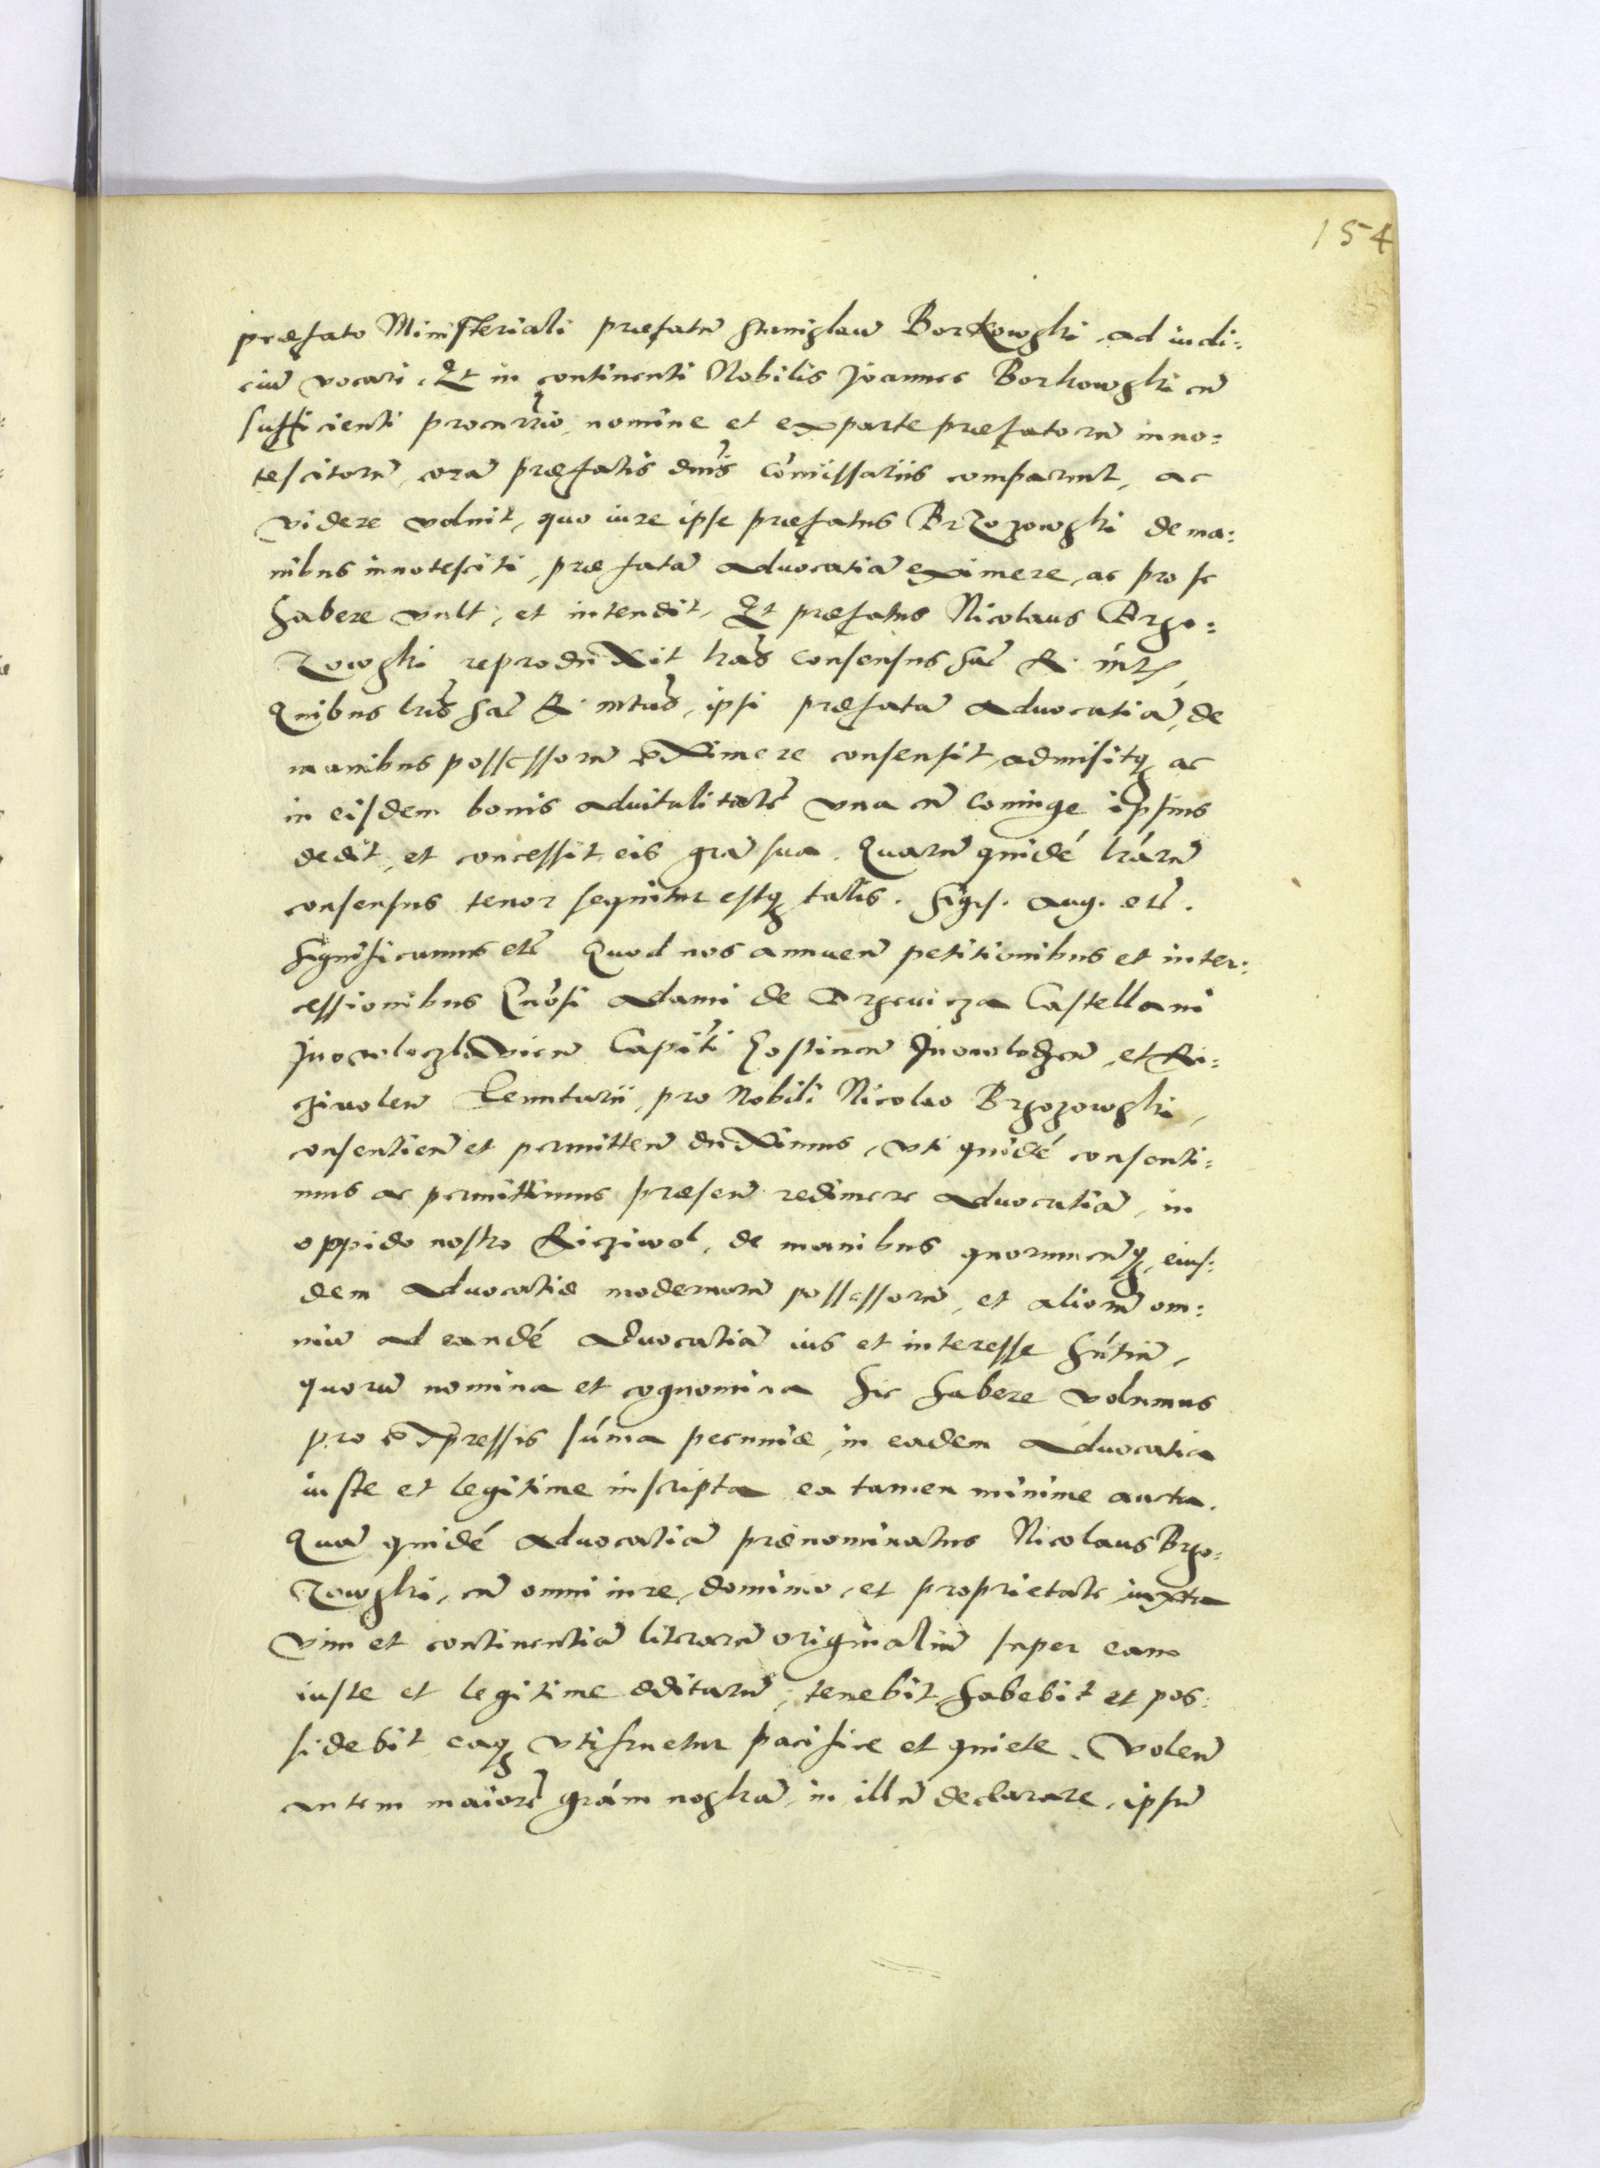 154
præfato Ministeriali præfatũ Stanislaũ Borkowski ad iudi:
ciũ vocari. Et in continenti Nobilis Joannes Borkowski cũ
sufficienti procurrio, nomine et ex parte præfatorũ inno:
tescitorũ, corã præfatis dnis Comissariis comparuit, ac
videre voluit, quo iure ipse præfatus Brzozowski de ma:
nibus innotesciti, præfatã advocatiã eximere, ac pro se
habere vult, et intendit. Et præfatus Nicolaus Brzo:
zowski reproduxit lras consensus Sac R. mtis,
Quibus lris Sac R. mtas, ipsi præfatã advocatiã, de
manibus possessorũ eximere consensit, admisitq ac
in eisdem bonis advitalitatẽ vna cũ coniuge ipsius
dedit, et concessit eis gra sua. Quarũ quidé lrárũ
consensus tenor sequitur estq talis. Sigis. Aug. etc.
Significamus etc Quod nos annuen petitionibus et inter:
cessionibus Gnosi Adami de Drzewicza Castellani
Jnowloczlavien Capiti Gostinen Jnowlodzen, et Ri:
cziwolen Tenutarii, pro Nobili Nicolao Brzozowski,
consentien et permitten duximus, vti quidé consenti:
mus ac permittimus præsen redimere advocatiã, in
oppido nostro Ricziwol, de manibus quorumcũq, eius:
dem advocatiæ modernorũ possessorũ, et aliorũ om:
niũ ad eandé advocatiã ius et interesse hñtiũ,
quorũ nomina et cognomina hic habere volumus
pro expressis súma pecuniæ, in eadem advocatia
iuste et legitime inscripta ea tamen minime aucta.
Quã quidé advocatiã prænominatus Nicolaus Brzo:
zowski, cũ omni iure, dominio, et proprietate, iuxta
vim et continentiã literarũ originaliũ super eam
iuste et legitime editarũ, tenebit habebit et pos:
sidebit eaq vtifruetur pacifice et quiete. Volen
autem maiorẽ grám nostrã in illũ declarare, ipsũ